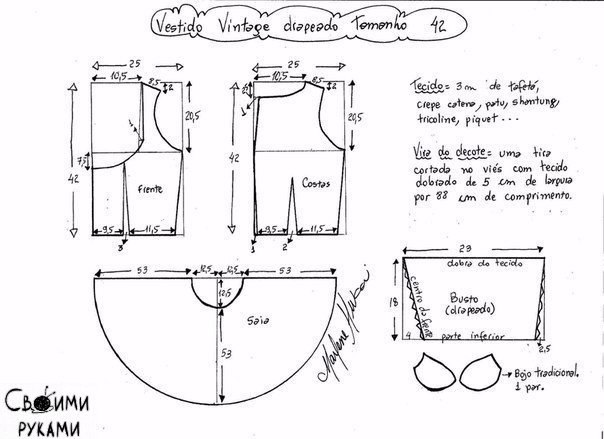 Vestido Vintage drapeado Tamanho 42
25
10,5
8,5
2
20,5
42
7,5
Frente
9,5
11,5
3
25
10,5
8,5
2
20,5
42
Costas
9,5
11,5
1
2
Tecido = 3 m de tafetá,
crepe catena, patu, shantung,
tricoline, piquet ...
Vira do decote = uma tira
cortada no viés com tecido
dobrado de 5 cm de largura
por 88 cm de comprimento.
53
12,5
12,5
53
12,5
Saia
53
Marlene Mukai
23
dobra do tecido
18
centro da frente
Busto
(drapeado)
4
parte inferior
2,5
Bojo tradicional.
1 par.
Своими
руками